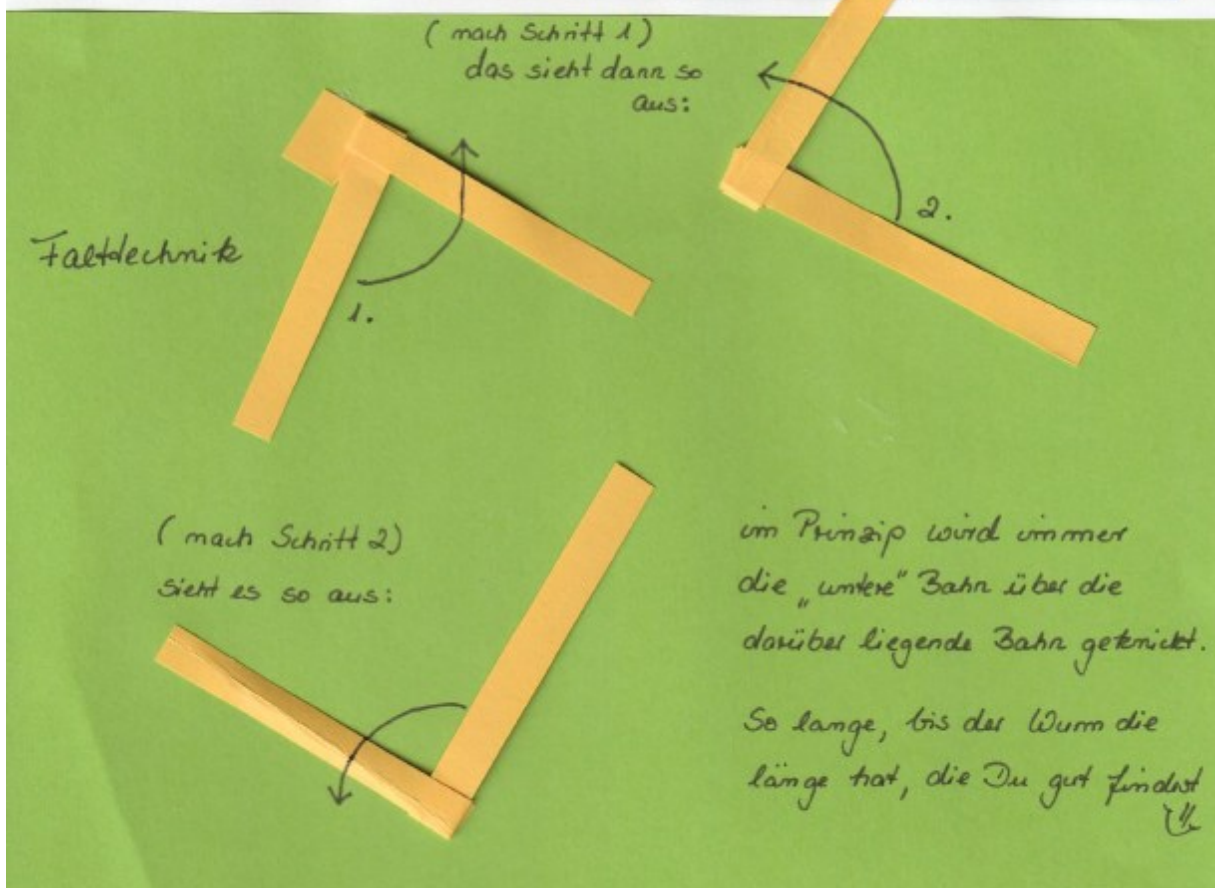 (nach Schritt 1)
das sieht dann so
aus:
2.
Faltdechnik
1.
(nach Schritt 2)
sieht es so aus:
im Prinzip wird immer
die „untere" Bahn über die
darüber liegende Bahn geknickt.
So lange, bis der Wurm die
länge hat, die Du gut findest